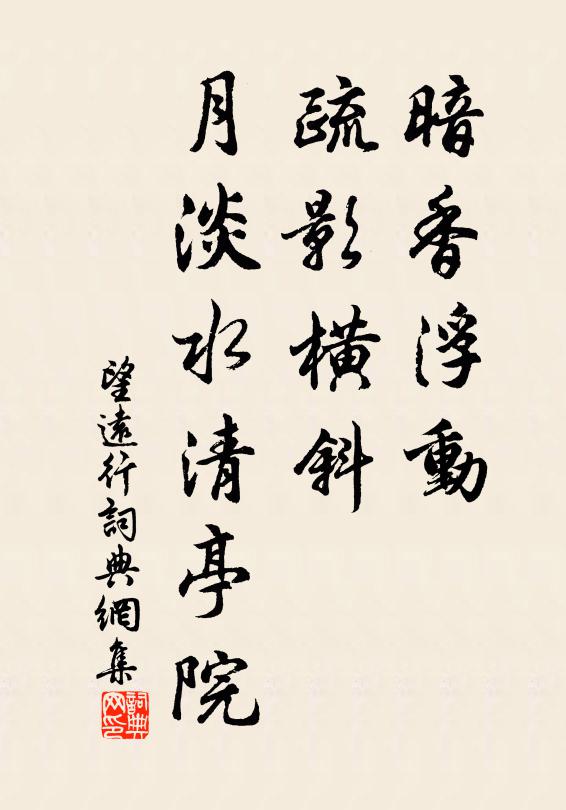 暗香浮動
疏影橫斜
月淡水清亭院
望遠行詞典網集
詞典
网印